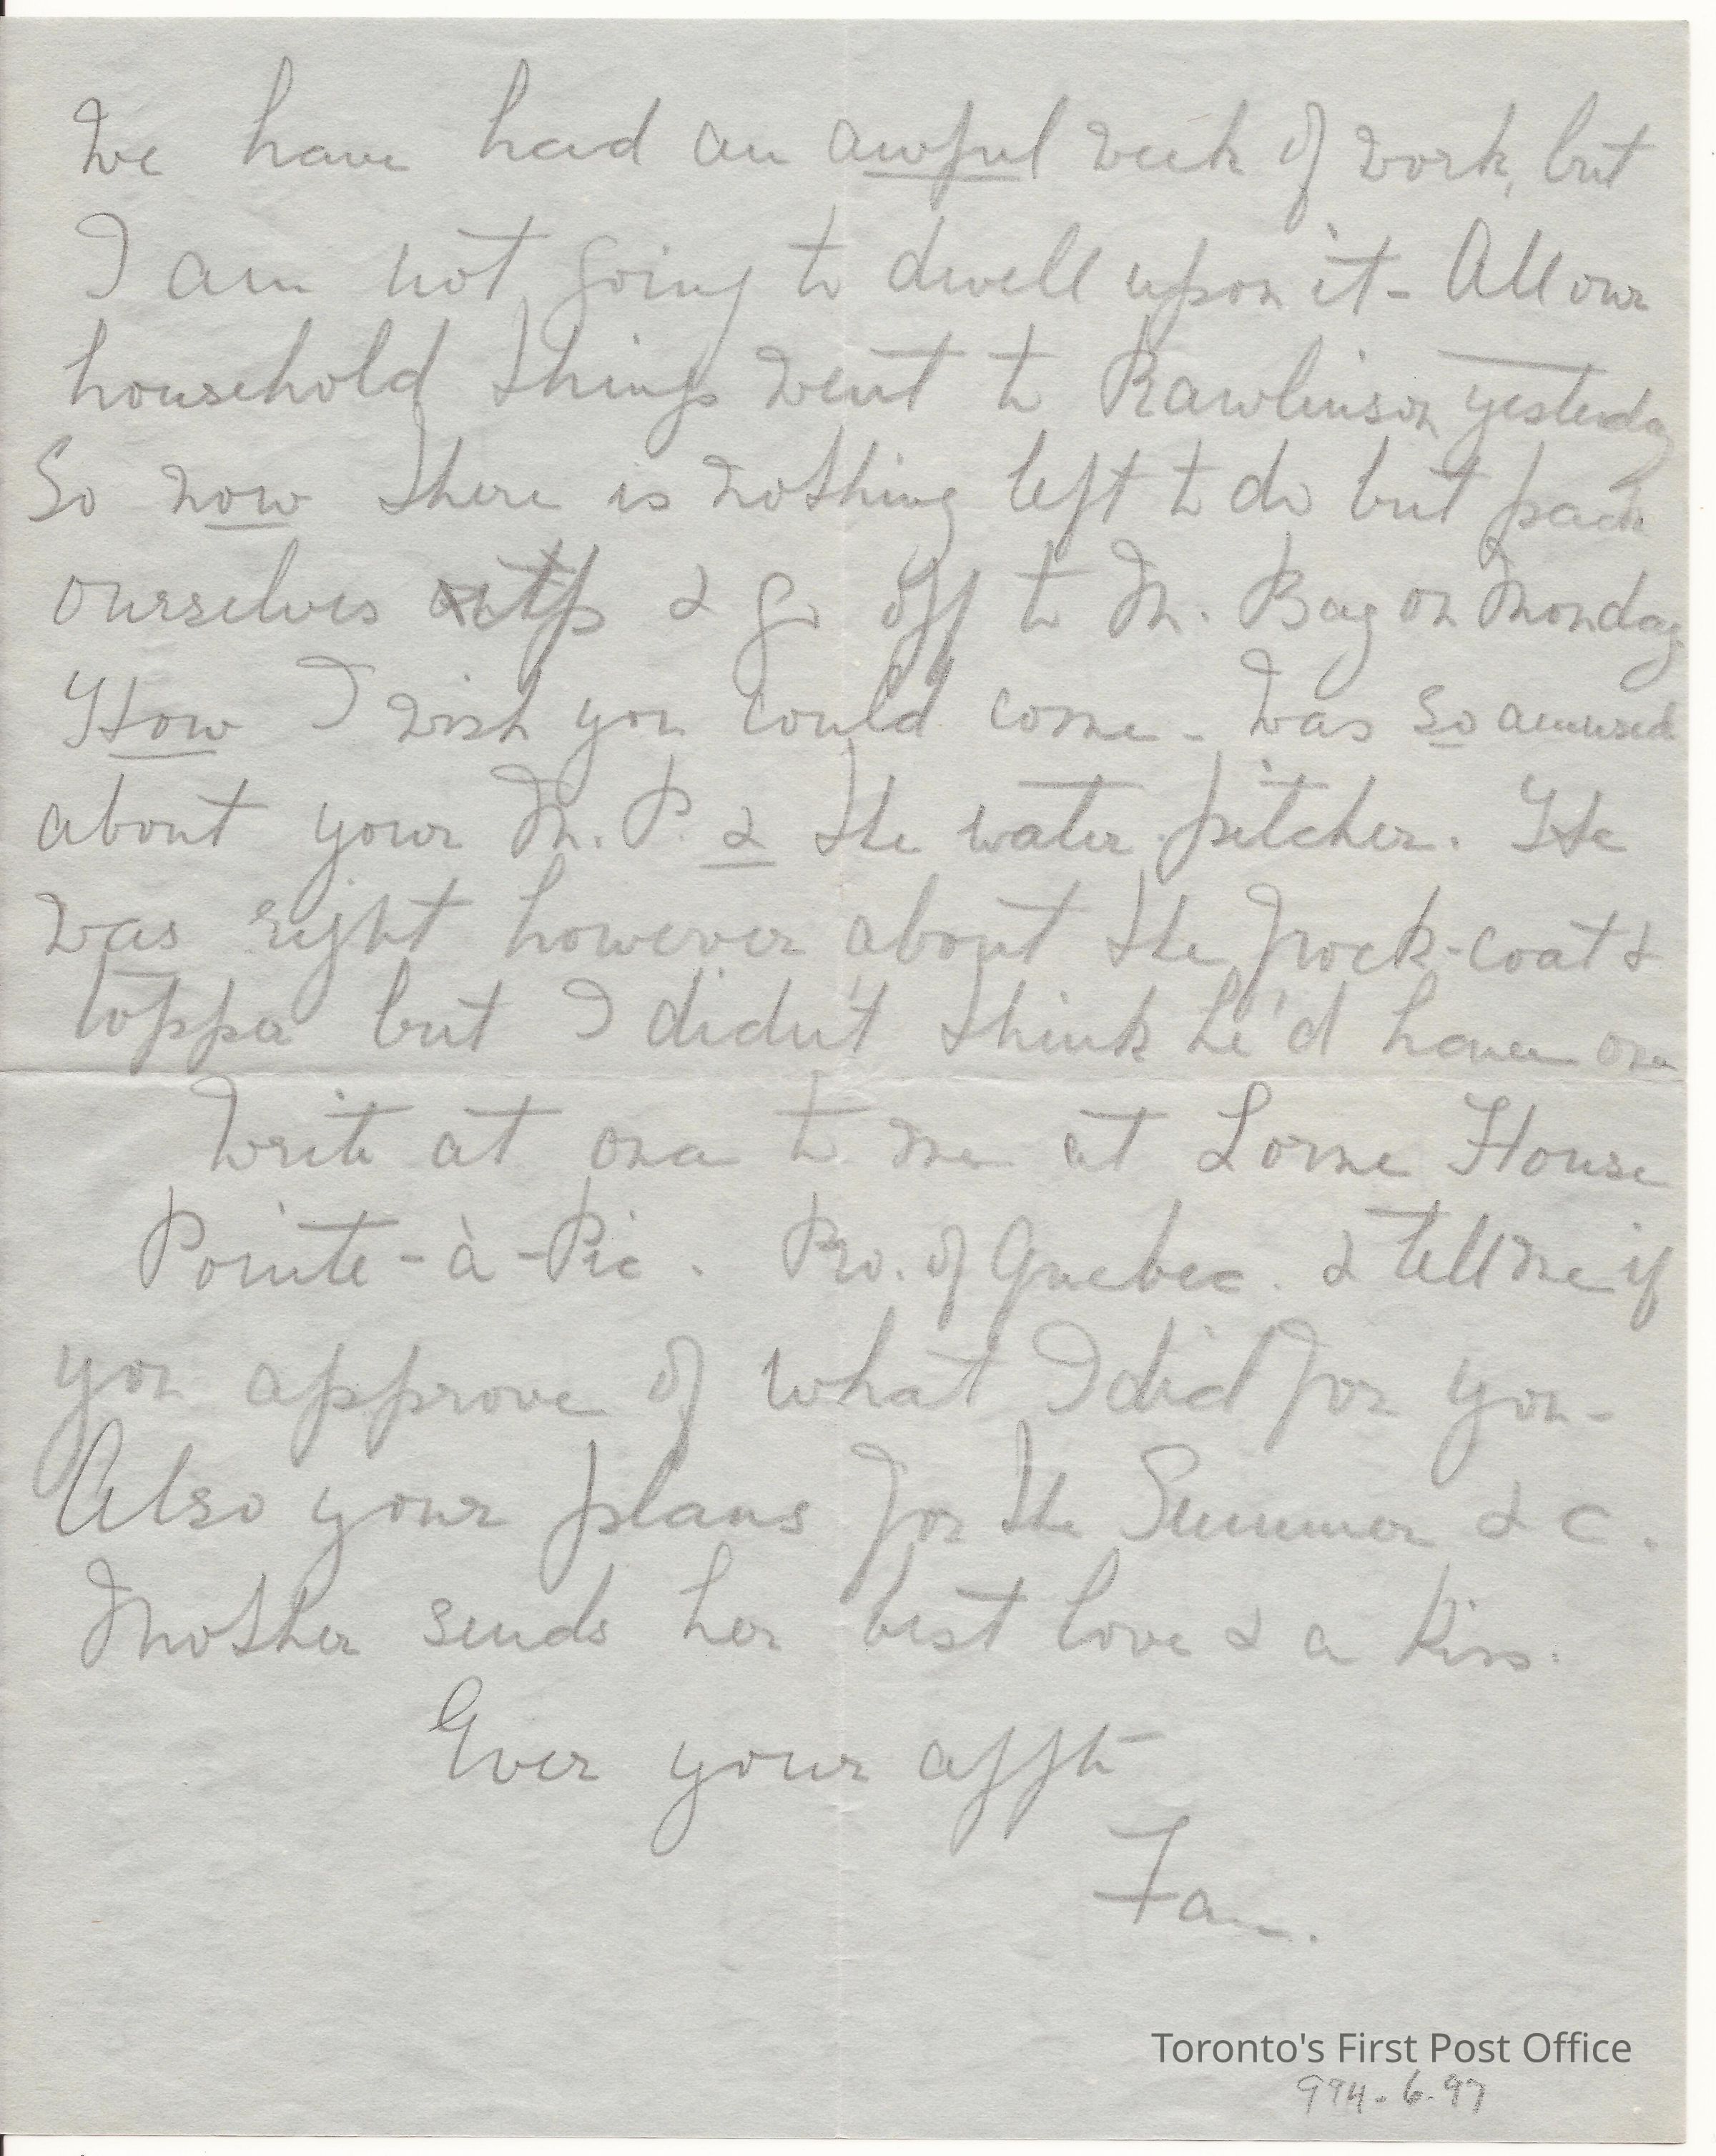 We have had an awful week of work, but
I am not going to dwell upon it - All our
household things went to Rawlinson yesterday
So now there is nothing left to do but pack
ourselves & go off to M. Bay on Monday
How I wish you could come - Was so amused
about your M. P. & the water pitcher. He
was right however about the frock-coat &
toppa but I didn't think he'd have one
Write at once to me at Lorne House
Pointe-à-Pic. Pro. of Quebec. & tell me if
you approve of what I did for you -
Also your plans for the Summer & c.
Mother sends her best love & a kiss.
Ever your affte
Fan.
Toronto's First Post Office
994-6-97